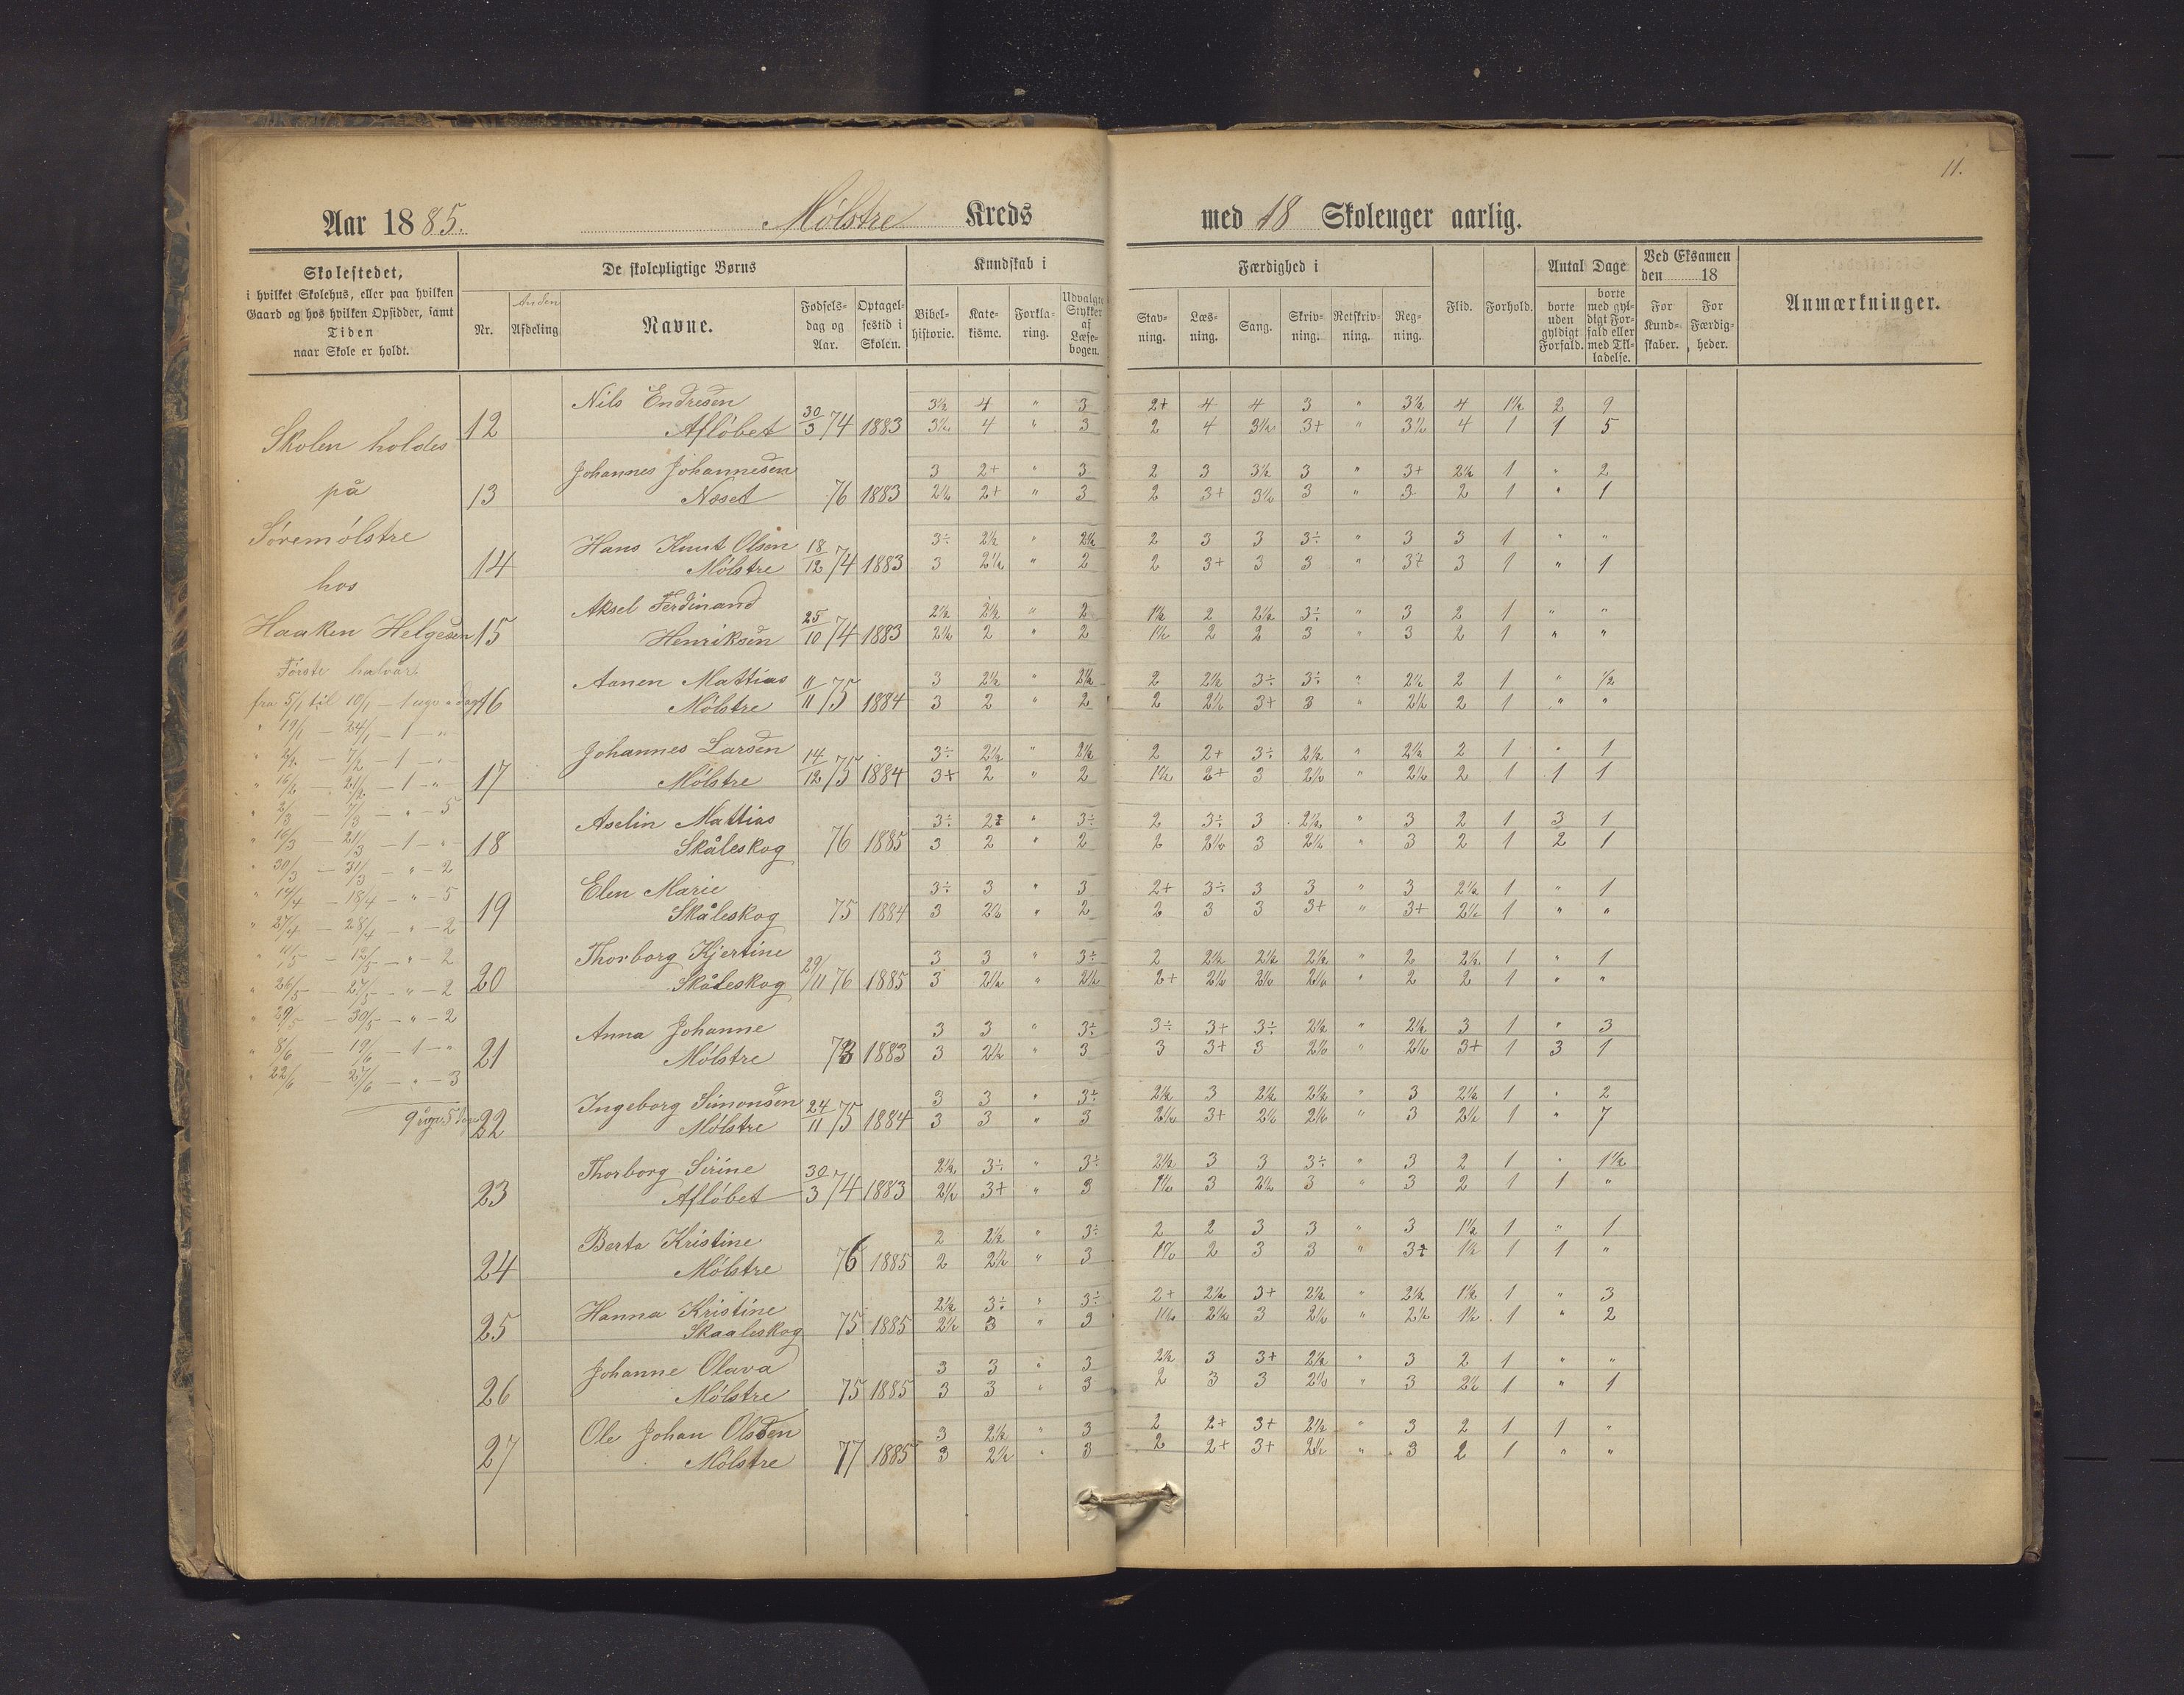 11.
Aar 1885. Mølstre Kreds med 18 Skoleuger aarlig.
Skolestedet,
i hvilket Skolehus, eller paa hvilken
Gaard og hos hvilken Opsidder, samt
Tiden
naar Skole er holdt.
De skolepligtige Børns
Nr.
Anden
Afdeling
Navne.
Fødsels-
dag og
Aar.
Optagel-
sestid i
Skolen.
Kundskab i
Bibel-
historie.
Kate-
kisme.
Forkla-
ring.
Udvalgte
Stykker
af
Læse-
bogen.
Færdighed i
Stav-
ning.
Læs-
ning.
Sang.
Skriv-
ning.
Retskriv-
ning.
Reg-
ning.
Flid.
Forhold.
Antal Dage
borte
uden
gyldigt
Forfald.
borte
med gyl-
digt For-
fald eller
med Til-
ladelse.
Ved Eksamen
den 18
For
Kund-
skaber.
For
Færdig-
heder.
Anmærkninger.
Skolen holdes
på
Søremølstre
hos
Haaken Helgesen
Første halvår
fra 5/1 til 10/1 – 1 uge " dage
" 19/1 – 24/1 – 1 – "
" 2/2 – 7/2 – 1 – "
" 16/2 – 21/2 – 1 – "
" 2/3 – 7/3 – " – 5
" 16/3 – 21/3 – 1 – "
" 30/3 – 31/3 – " – 2
" 14/4 – 18/4 – " – 5
" 27/4 – 28/4 – " – 2
" 11/5 – 12/5 – " – 2
" 26/5 – 27/5 – " – 2
" 29/5 – 30/5 – " – 2
" 8/6 – 19/6 – 1 – "
" 22/6 – 27/6 – " – 3
9 uger 5 dage
12 Nils Endresen 3½ 4 " 3 2+ 4 4 3 " 3½ 4 1½ 2 9
Afløbet 30/3 74 1883 3½ 4 " 3 2 4 3½ 3+ " 3½ 4 1 1 5
13 Johannes Johannesen 3 2+ " 3 2 3 3½ 3 " 3+ 2½ 1 " 2
Noset 76 1883 2½ 2+ " 3 2 3+ 3½ 3 " 3 2 1 " 1
14 Hans Knut Olsen 18/12 74 3÷ 2½ " 2½ 2 3 3 3÷ " 3 3 1 " "
Mølstre 1883 3 2½ " 2 2 3+ 3 3 " 3+ 3 1 " 1
15 Aksel Ferdinand 2½ 2½ " 2 1½ 2 2½ 3÷ " 3 2 1 " "
Henriksen 25/10 74 1883 2½ 2 " 2 1½ 2 2 3 " 3 2 1 " "
16 Aanen Mattias 3 2½ " 2½ 2 2½ 3÷ 3÷ " 2½ 2 1 " ½
Mølstre 11/11 75 1884 3 2 " 2 2 2½ 3+ 3 " 2½ 2 1 " "
17 Johannes Larsen 3÷ 2½ " 2½ 2 2+ 3÷ 2½ " 2½ 2 1 " 1
Mølstre 14/12 75 1884 3+ 2 " 2 1½ 2+ 3 2½ " 2½ 2 1 1 1
18 Aselin Mattias 3÷ 2÷ " 3÷ 2 3÷ 3 2½ " 3 2 1 3 1
Skåleskog 76 1885 3 2 " 2 2 2½ 3 2½ " 3 2 1 2 1
19 Elen Marie 3÷ 3 " 3 2+ 3÷ 3 3 " 3 2½ 1 " 1
Skåleskog 75 1884 3 2½ " 2 2 3 3 3+ " 3+ 2½ 1 " "
20 Thorborg Kjertine 3 3 " 3÷ 2 2½ 2½ 2½ " 2 2½ 1 " 1
Skåleskog 29/11 76 1885 3 2½ " 2½ 2+ 2½ 2½ 2½ " 2 2 1 " "
21 Anna Johanne 3 3 " 3÷ 3÷ 3+ 3÷ 2½ " 2½ 3 1 " 3
Mølstre 73 1883 3 2½ " 3 3 3+ 3 2½ " 2½ 3+ 1 3 1
22 Ingeborg Simonsen 3 3 " 3÷ 2½ 3 2½ 2½ " 3 2½ 1 " 2
Mølstre 24/11 75 1884 3 3 " 3 2½ 3+ 2½ 2½ " 3 2½ 1 " 7
23 Thorborg Sirine 2½ 3÷ " 3÷ 2½ 3 3 3÷ " 3 2 1 " 1½
Afløbet 30/3 74 1883 2½ 3+ " 3 1½ 3 2½ 3 " 3 2 1 1 "
24 Berta Kristine 2 2½ " 3÷ 2 2 3 3 " 3 1½ 1 " 1
Mølstre 76 1885 2 2½ " 3 1½ 2 3 3 " 3+ 1½ 1 1 "
25 Hanna Kristine 2½ 3÷ " 3÷ 2+ 2½ 3+ 2½ " 2½ 1½ 1 " 3
Skaaleskog 75 1885 2½ 3 " 3 1½ 2½ 3 2½ " 2½ 1½ 1 " 2
26 Johanne Olava 3 3 " 3 2½ 3 3+ 2½ " 3 2 1 " "
Mølstre 75 1885 3 3 " 3 2 3 3 2½ " 3 2½ 1 " 1
27 Ole Johan Olsen 3 2½ " 3 2 2+ 3+ 2½ " 3 2 1 1 "
Mølstre 77 1885 3 2½ " 3 2 2+ 3+ 2½ " 3 2 1 " "